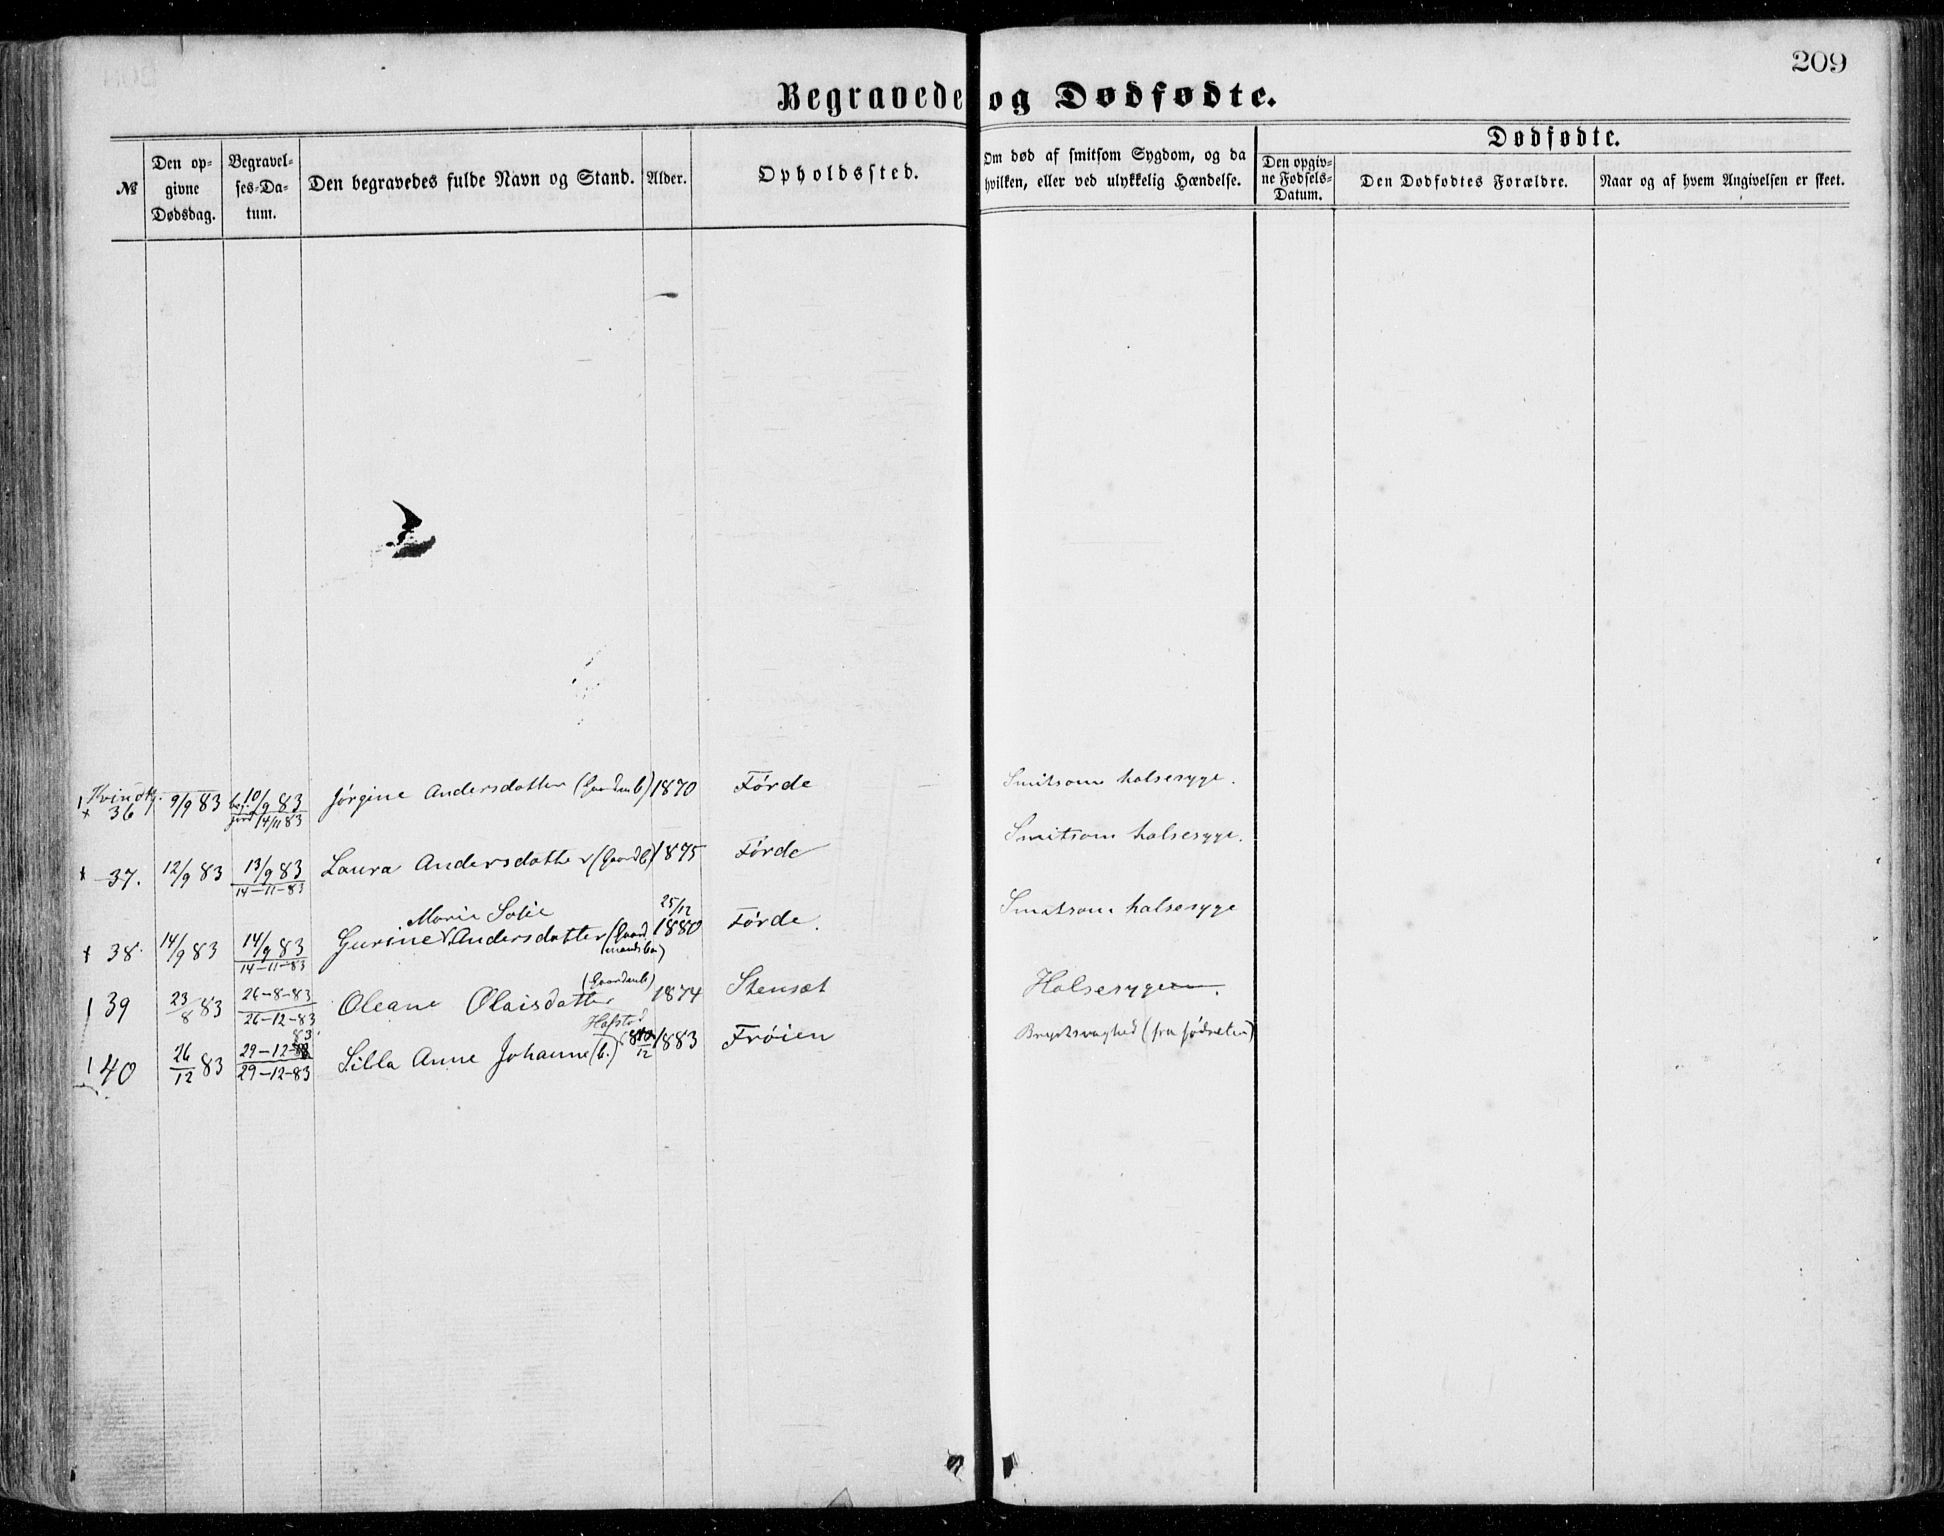 209
Begravede og Dødfødte.
№
Den opgivne Dødsdag.
Begravelses-Datum.
Den begravedes fulde Navn og Stand.
Alder.
Opholdssted.
Om død af smitsom Sygdom, og da hvilken, eller ved ulykkelig Hændelse.
Dødfødte.
Den opgivne Fødsels-Datum.
Den Dødfødtes Forældre.
Naar og af hvem Angivelsen er skeet.
Kvindk.
+ 36 9/9 83 beg. 10/9 83 jord 14/11 83 Jørgine Andersdatter (Gaardmb) 1870 Førde Smitsom halsesyge.
+ 37. 12/9 83 13/9 83 14-11-83 Laura Andersdatter (Gaardb) 1875 Førde Smitsom halsesyge.
+ 38 14/9 83 14/9 83 14-11-83 Gurine Marie Sofie Andersdatter (Gaardmandsba) 25/12 1880 Førde. Smitsom halsesyge
39 23/8 83 26-8-83 26-12-83 Oleane Olaisdatter (Gaardmb) 1874 Stensæt Halsesygen.
40 26/12 83 29-12-83 29-12-83 Silla Anne Johanne Hafstad (b.) 1883 Frøien (fra fødselen)